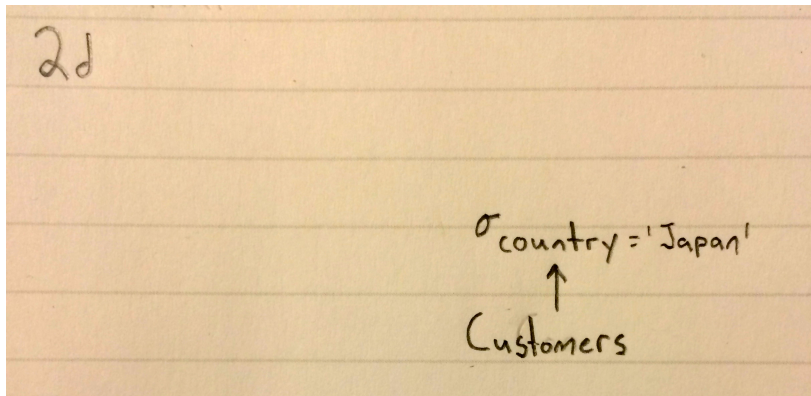 2d
σ country = 'Japan'
↑
Customers